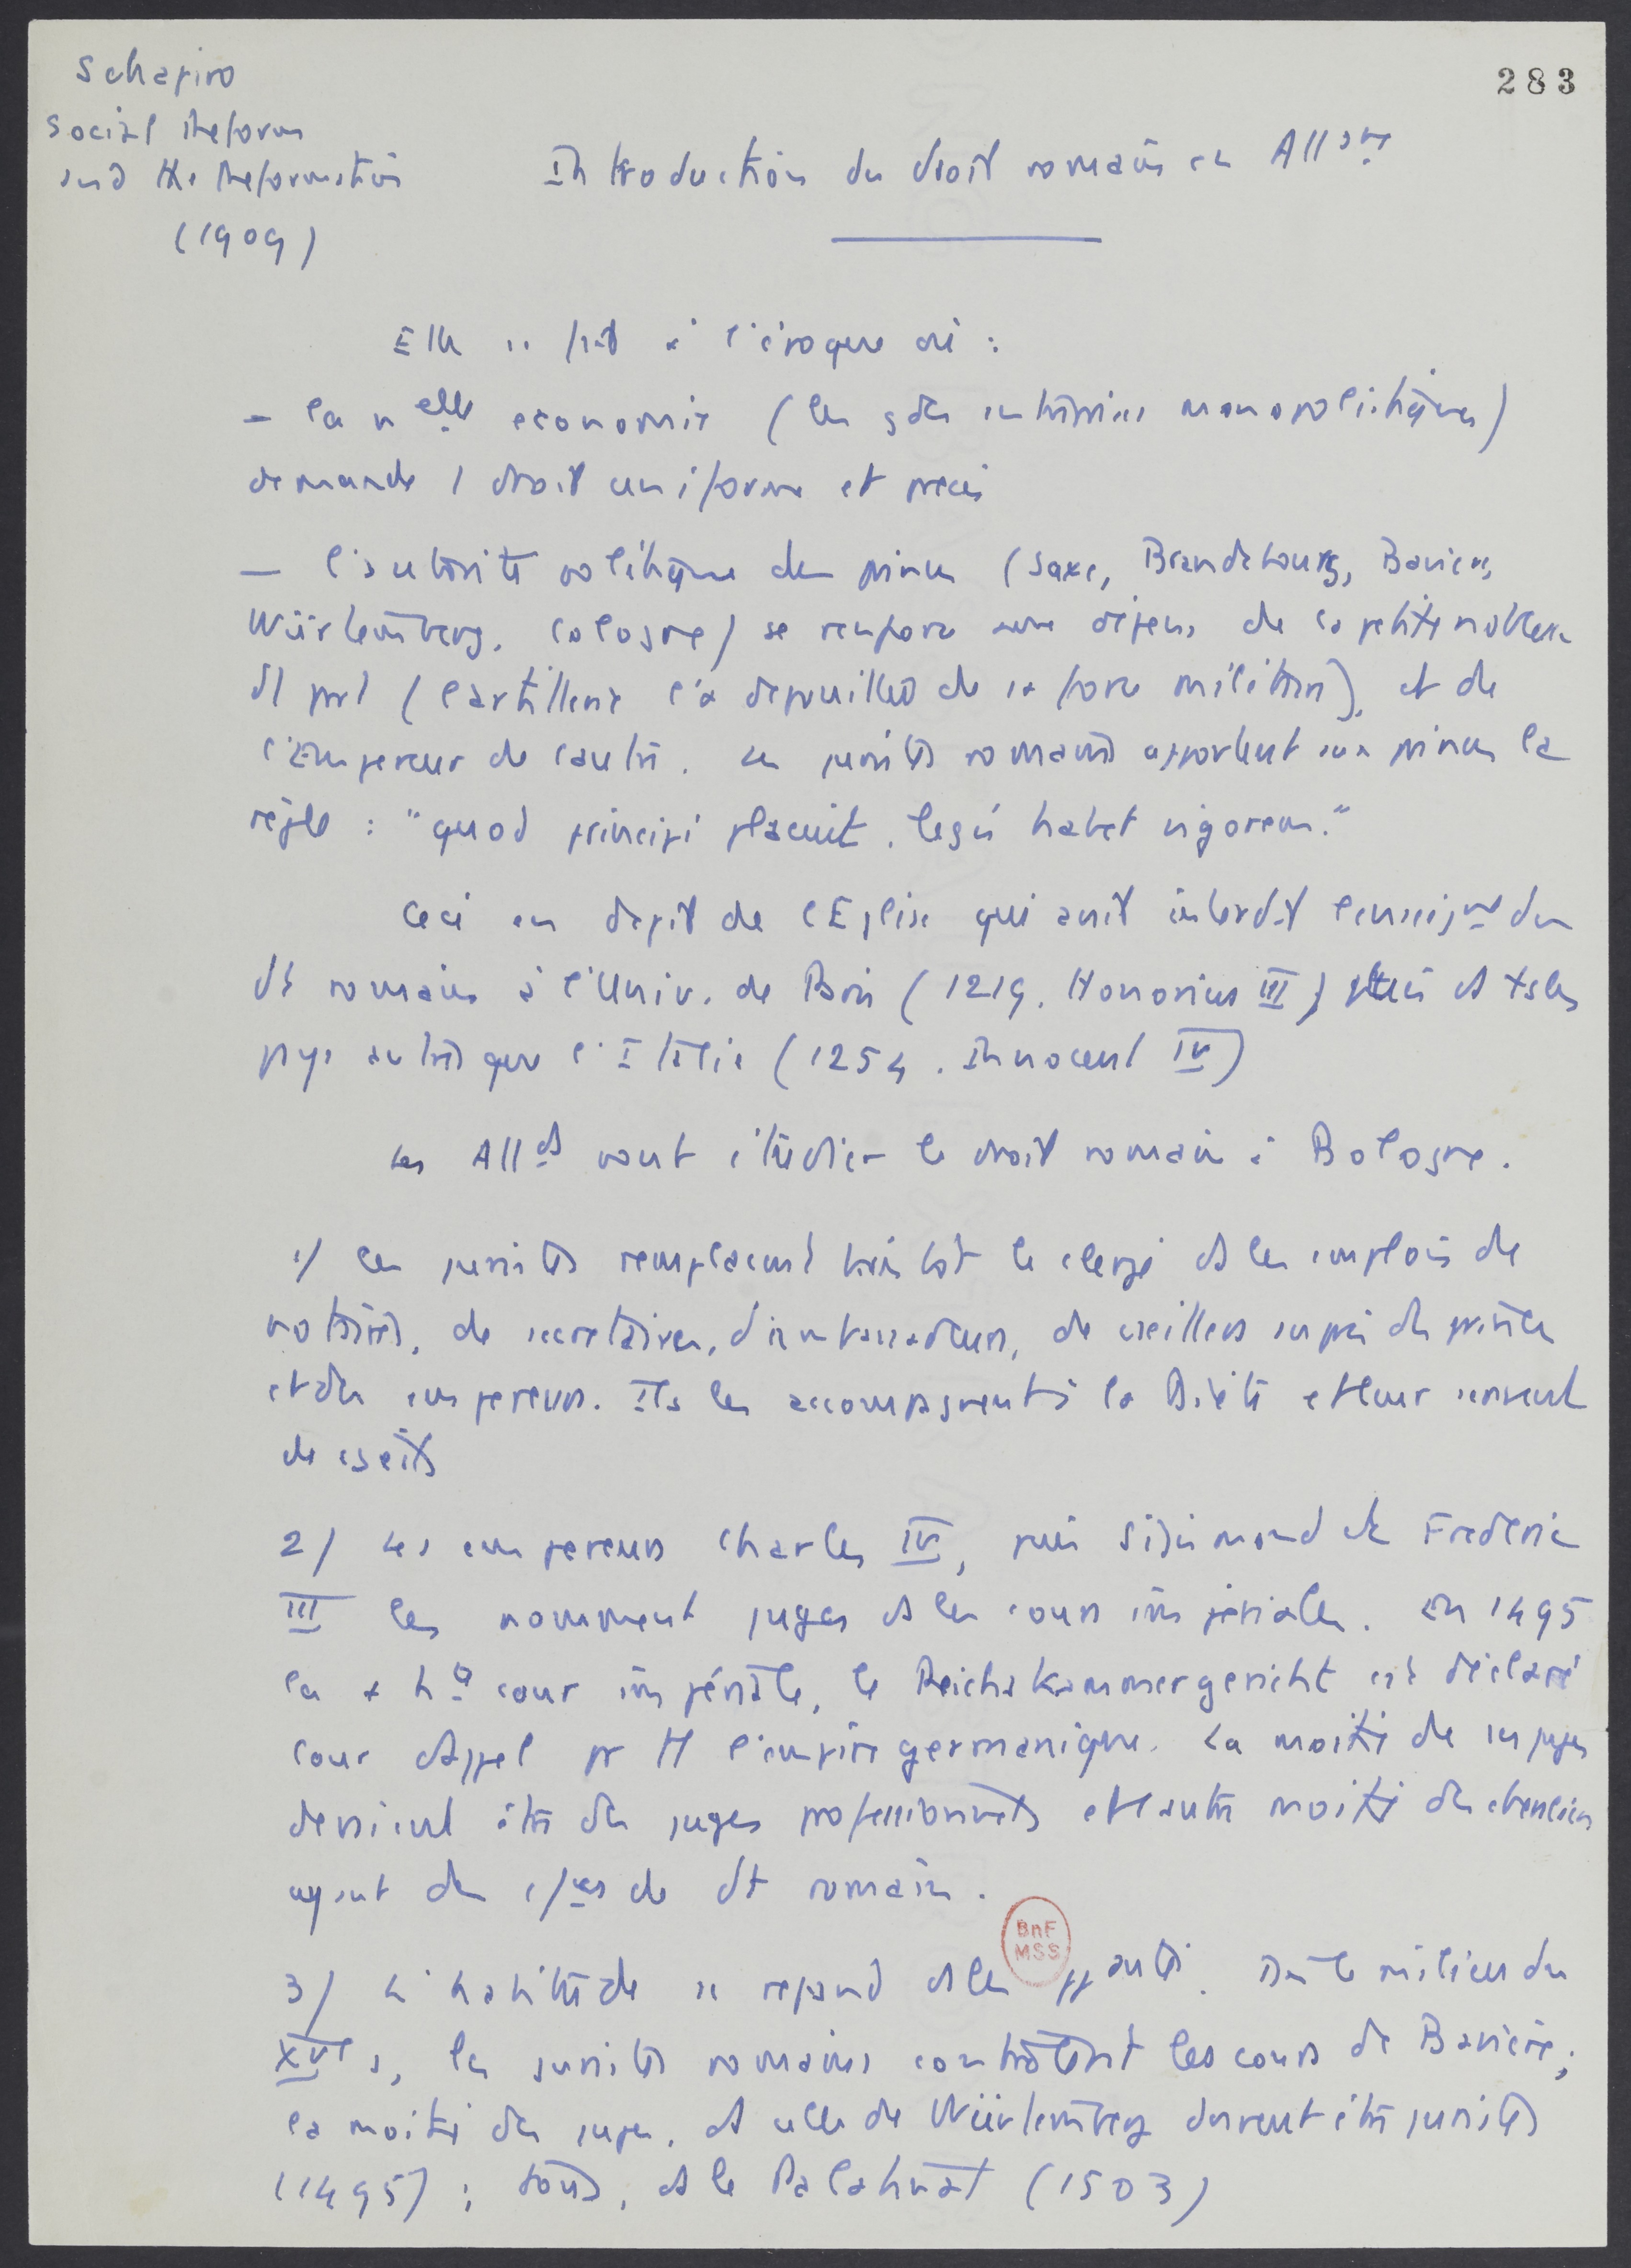 Schapiro
283
Social Reform
and the Reformation
(1909)
Introduction du droit romain en All ne
Elle se fait à l'époque où :
- la n elle economie (les gdes entreprises monopolistiques)
demande 1 droit uniforme et precis
- l'autorité politique des princes (Saxe, Brandebourg, Baviere,
Würtemberg, Cologne) se renforce aux dépens de la petite noblesse
d1 part (l'artillerie l'a depouillée de sa force militaire), et de
l'Empereur de l'autre. Les juristes romains apportent aux princes la
règle : "quod principi placuit, legis habet vigorem."
Ceci en depit de l'Eglise qui avait interdit l'enseigne nt du
dt romain à l'Univ. de Paris (1219. Honorius III) puis ds ts les
pays autres que l'Italie (1254. Innocent IV)
Les All ds vont étudier le droit romain à Bologne.
1/ les juristes remplacent bientôt le clergé ds les emplois de
notaires, de secretaires, d'ambassadeurs, de cseillers auprès des princes
et des empereurs. Ils les accompagnent à la Diète et leur servent
de
2/ Les empereurs Charles IV, puis Sigismond et Frederic
III les nomment juges ds les cours impériales. En 1495
la + h te cour impériale, le Reichskammergericht est déclaré
cour d'appel pr tt l'empire germanique. La moitié de ses juges
devaient être des juges professionnels et l'autre moitié des chevaliers
ayant des de dt romain.
BnF
MSS
3/ L'habitude se repand ds les Dès le milieu du
XVe s, les juristes romains contrôlent les cours de Bavière;
la moitié des juges, ds celle de Würtemberg doivent être juristes
(1495) ; tous, ds le Palatinat (1503)